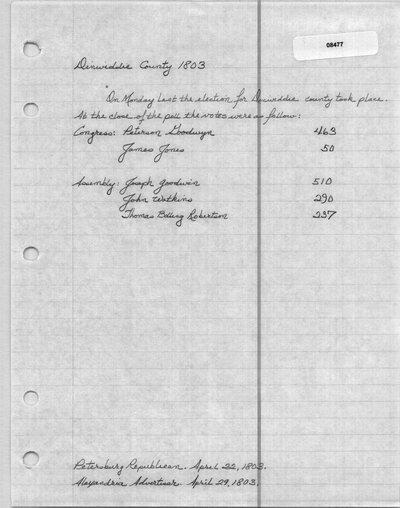 08477
Dinwiddie County 1803
"On Monday last the election for Dinwiddie county took place.
At the close of the poll the votes were as follow:
Congress: Peterson Goodwyn 463
James Jones 50
Assembly: Joseph Goodwin 510
John Watkins 290
Thomas Bolling Robertson 237
Petersburg Republican. April 22, 1803.
Alexandria Advertiser. April 29, 1803.